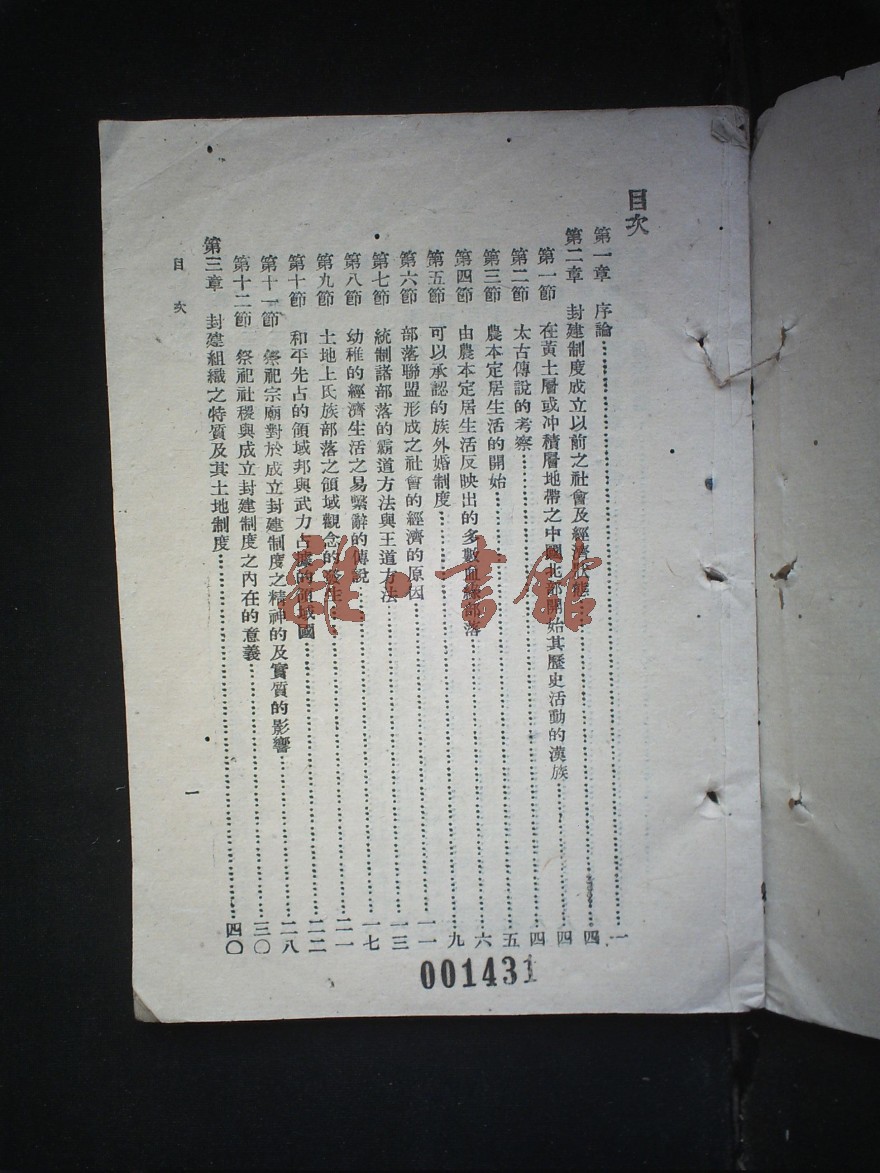 目次
第一章 序論……一
第二章 封建制度成立以前之社會及經濟狀態……四
第一節 在黃土層或冲積層地帶之中國北部開始其歷史活動的漢族……四
第二節 太古傳說的考察……四
第三節 農本定居生活的開始……五
第四節 由農本定居生活反映出的多數血緣部落……六
第五節 可以承認的族外婚制度……九
第六節 部落聯盟形成之社會的經濟的原因……一一
第七節 統制諸部落的霸道方法與王道方法……一三
第八節 幼稚的經濟生活之易繫辭的傳說……一七
第九節 土地上氏族部落之領域觀念的發生……二一
第十節 和平先占的領域邦與武力占據的領域國……二二
第十一節 祭祀宗廟對於成立封建制度之精神的及實質的影響……二八
第十二節 祭祀社稷與成立封建制度之內在的意義……三〇
第三章 封建組織之特質及其土地制度……四〇
目次
一
001431
書館